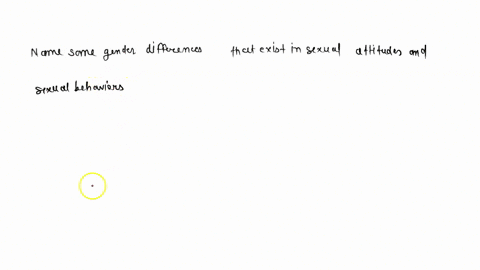 Name some gender differences that exist in sexual attitudes and
sexual behaviors